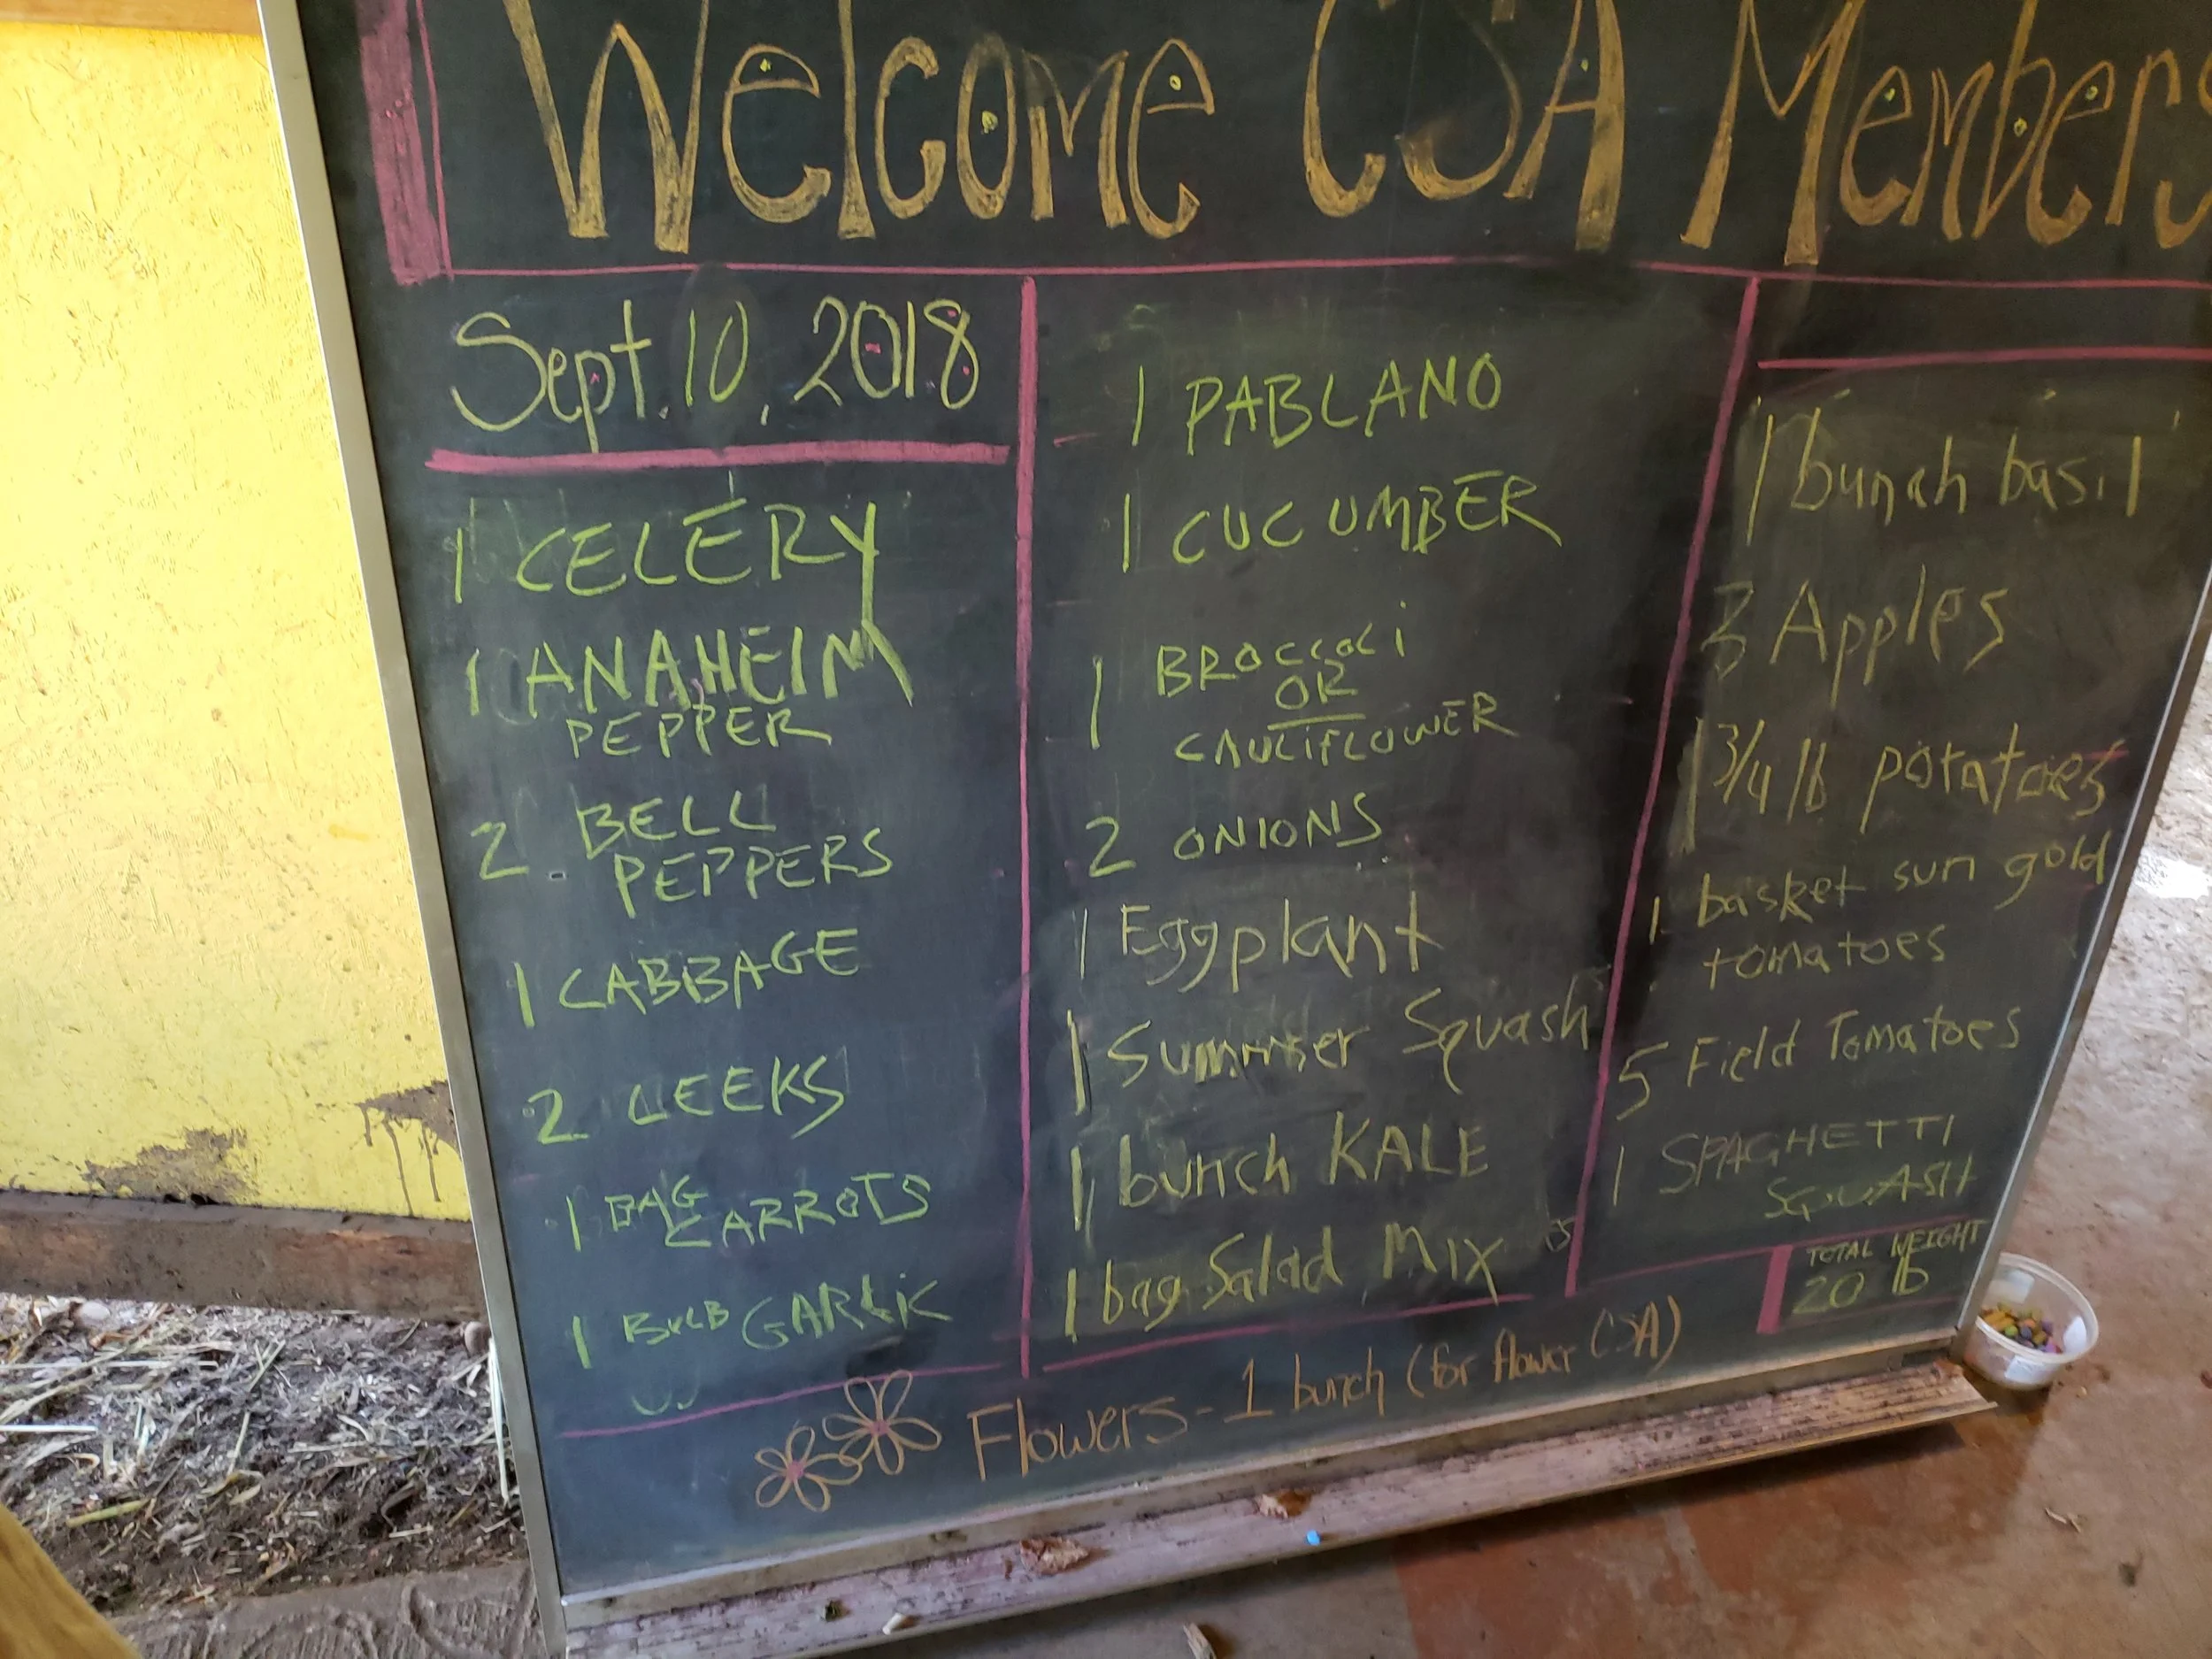 Welcome CSA Members
Sept. 10, 2018
1 CELERY
1 ANAHEIM
PEPPER
2 BELL
PEPPERS
1 CABBAGE
2 LEEKS
1 BAG
CARROTS
1 BULB GARLIK
1 PABLANO
1 CUCUMBER
1 BROCCOLI
OR
CAULIFLOWER
2 ONIONS
1 Eggplant
1 Summer Squash
1 bunch KALE
1 bag Salad Mix
1 bunch basil
3 Apples
1 3/4 lb potatoes
1 basket sun gold
tomatoes
5 Field Tomatoes
1 SPAGHETTI
SQUASH
TOTAL WEIGHT
20 lb
Flowers - 1 bunch (for flower CSA)